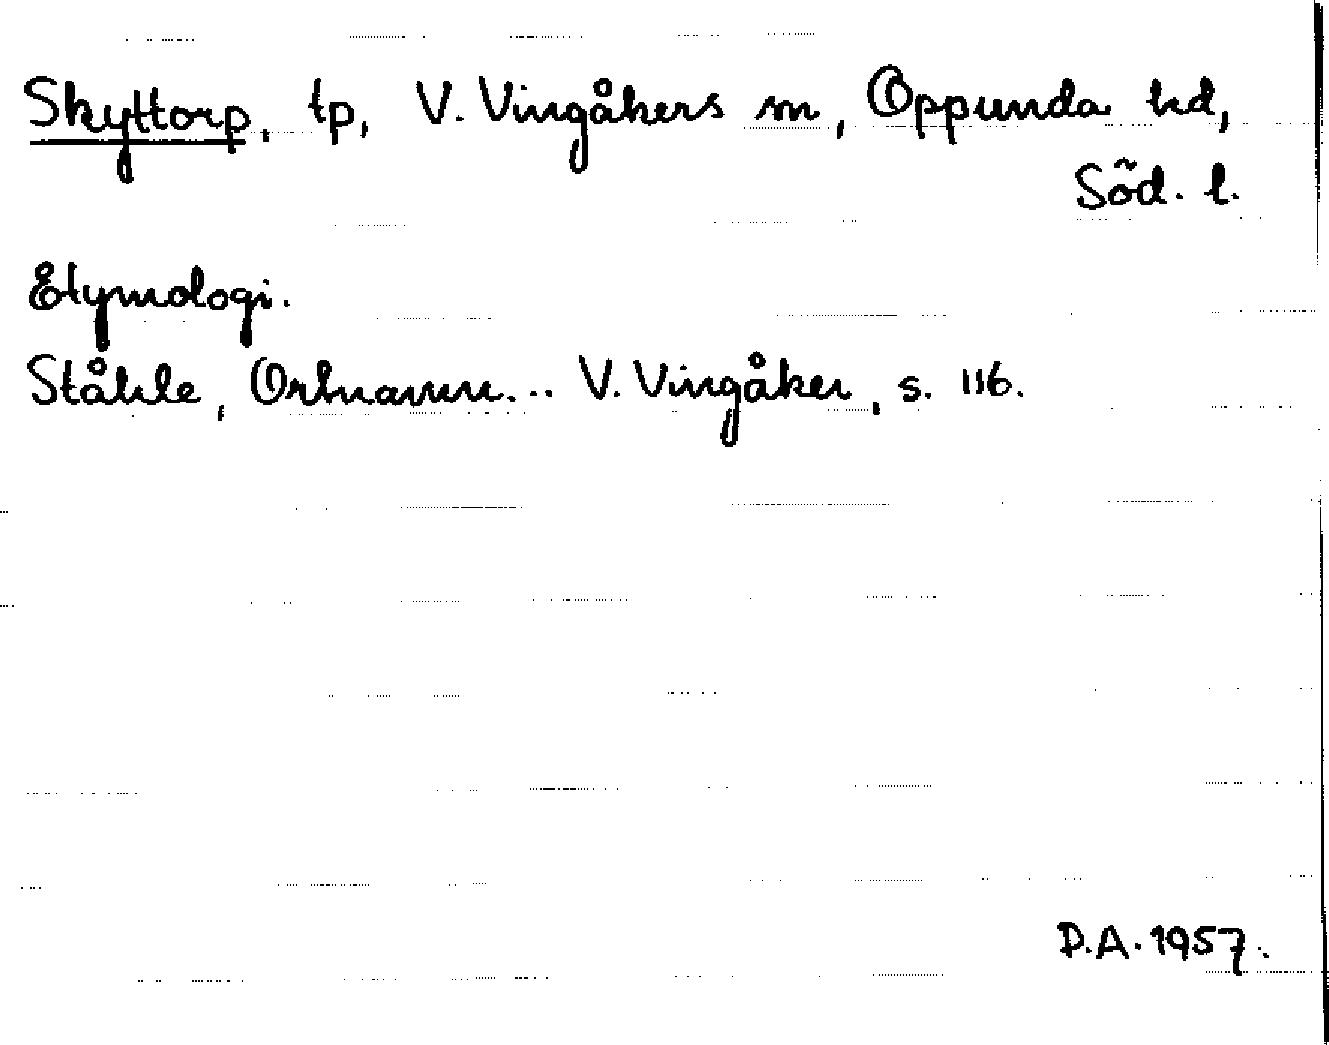 Skyttorp, tp, V. Vingåkers sn, Oppunda hd,
Söd. l.
Etymologi.
Ståhle, Ortnamn... V. Vingåker, s. 116.
D.A. 1957.